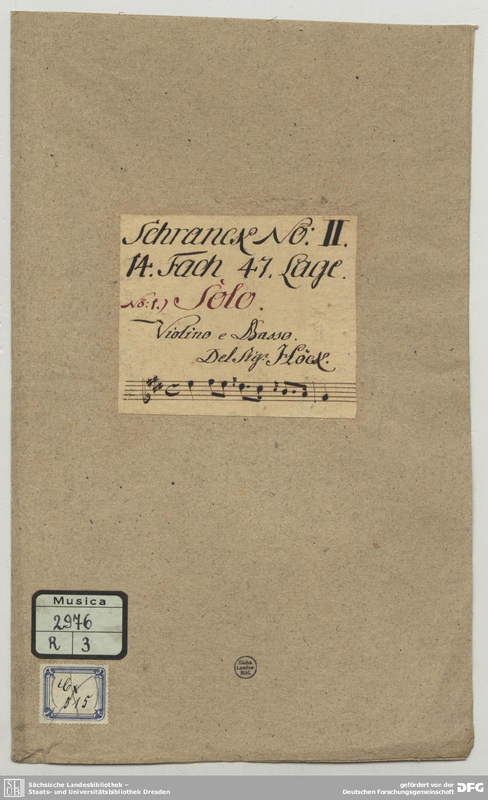 Schranck No: II.
14. Fach 47. Lage.
No: 1.) Solo.
Violino e Basso.
Del Sigr. Höck.
Musica
2976
R 3
515
Sächs.
Landes-
Bibl.
SLUB
Sächsische Landesbibliothek –
Staats- und Universitätsbibliothek Dresden
gefördert von der
Deutschen Forschungsgemeinschaft
DFG